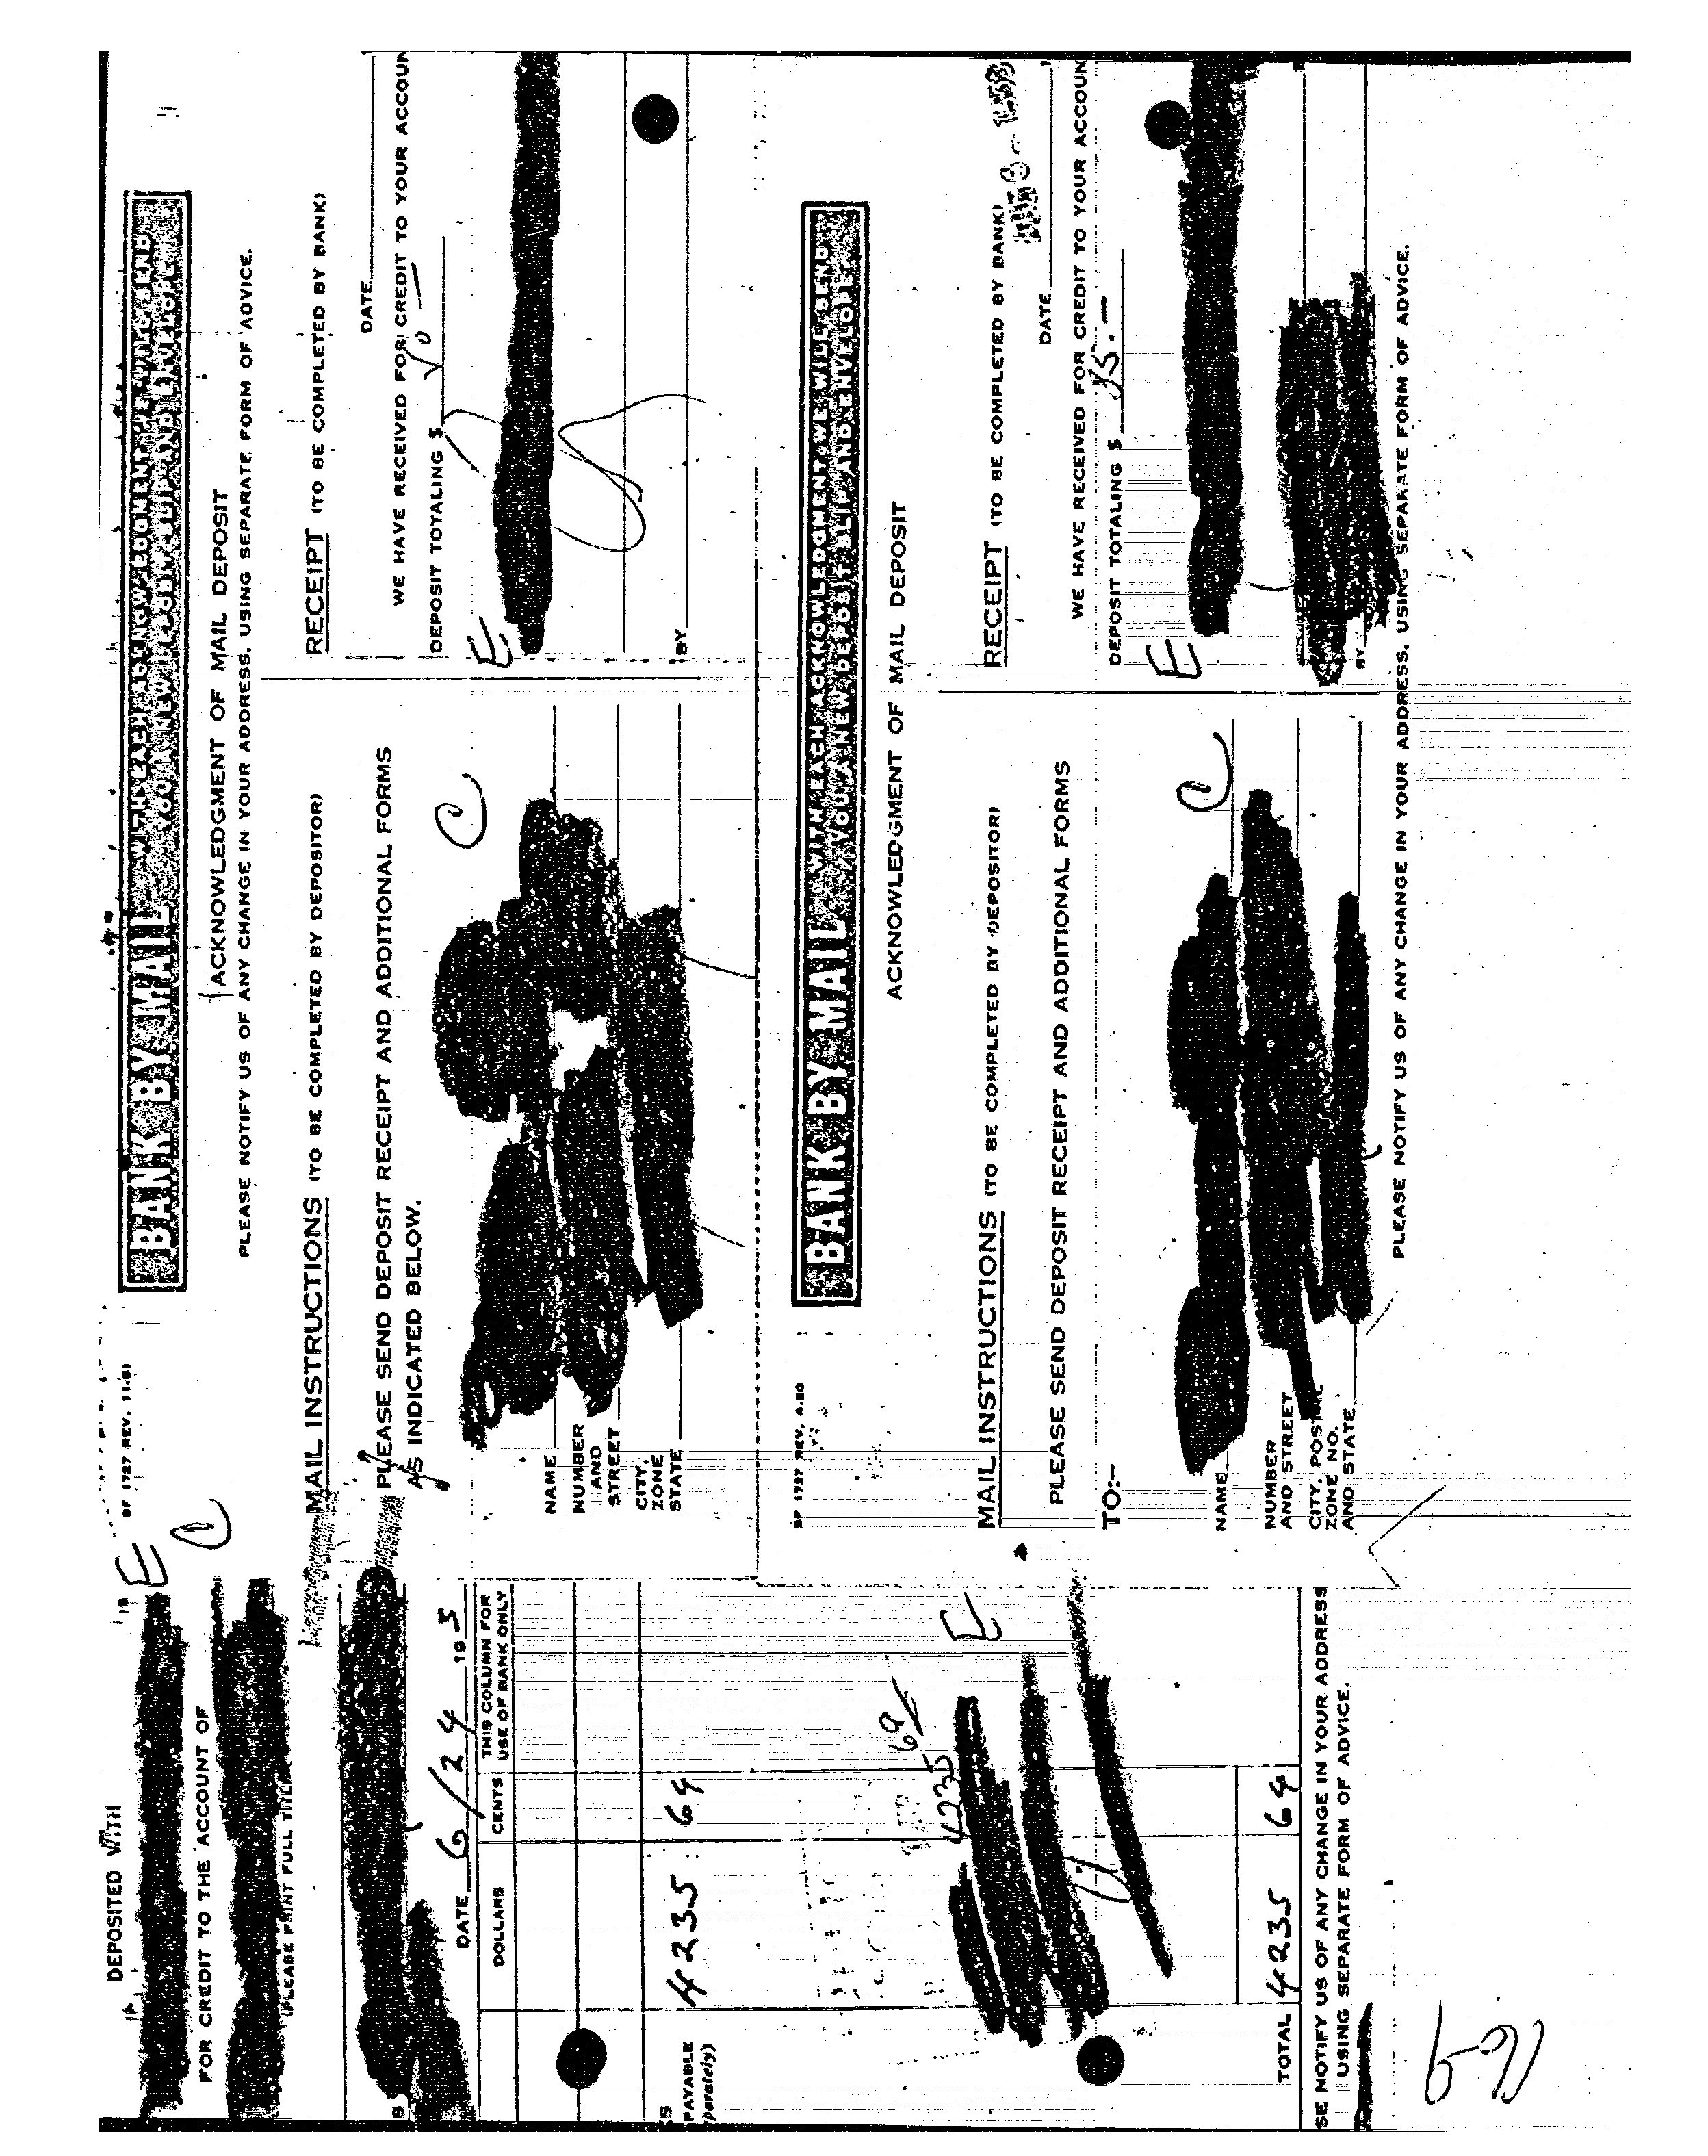 DEPOSITED WITH
E
C
FOR CREDIT TO THE ACCOUNT OF
(PLEASE PRINT FULL TITLE
DATE 6/24 195
DOLLARS CENTS THIS COLUMN FOR
USE OF BANK ONLY
PAYABLE 4235 64
parately)
4235
E
TOTAL 4235 64
SE NOTIFY US OF ANY CHANGE IN YOUR ADDRESS
USING SEPARATE FORM OF ADVICE.
SF 1727 REV. 11-51
BANK BY MAIL WITH EACH ACKNOWLEDGMENT WE WILL SEND
YOU A NEW DEPOSIT SLIP AND ENVELOPE
ACKNOWLEDGMENT OF MAIL DEPOSIT
PLEASE NOTIFY US OF ANY CHANGE IN YOUR ADDRESS, USING SEPARATE FORM OF ADVICE.
MAIL INSTRUCTIONS (TO BE COMPLETED BY DEPOSITOR)
PLEASE SEND DEPOSIT RECEIPT AND ADDITIONAL FORMS
AS INDICATED BELOW.
C
NAME
NUMBER
AND
STREET
CITY,
ZONE
STATE
RECEIPT (TO BE COMPLETED BY BANK)
DATE
WE HAVE RECEIVED FOR CREDIT TO YOUR ACCOUN
DEPOSIT TOTALING $
E
BY
SF 1727 REV. 4.50
BANK BY MAIL WITH EACH ACKNOWLEDGMENT WE WILL SEND
YOU A NEW DEPOSIT SLIP AND ENVELOPE
ACKNOWLEDGMENT OF MAIL DEPOSIT
MAIL INSTRUCTIONS (TO BE COMPLETED BY DEPOSITOR)
PLEASE SEND DEPOSIT RECEIPT AND ADDITIONAL FORMS
TO:-
C
NAME
NUMBER
AND STREET
CITY, POSTAL
ZONE NO.
AND STATE
RECEIPT (TO BE COMPLETED BY BANK)
DATE
WE HAVE RECEIVED FOR CREDIT TO YOUR ACCOUN
DEPOSIT TOTALING $
E
BY
PLEASE NOTIFY US OF ANY CHANGE IN YOUR ADDRESS, USING SEPARATE FORM OF ADVICE.